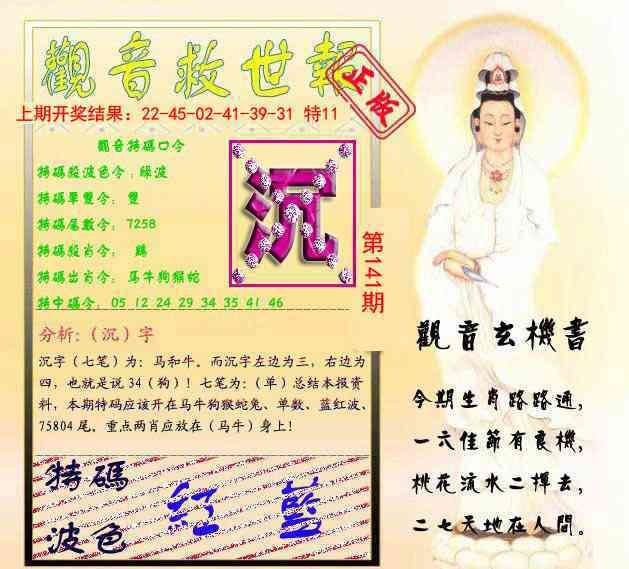 觀音救世報
正版
上期开奖结果：22-45-02-41-39-31 特11
觀音特碼口令
特碼殺波色令：綠波
特碼單雙令：雙
特碼尾數令：7258
特碼殺肖令：鷄
特碼出肖令：馬牛狗猴蛇
特中碼令：05 12 24 29 34 35 41 46
沉
第141期
分析：（沉）字
沉字（七笔）为：马和牛。而沉字左边为三，右边为
四，也就是说 34（狗）！七笔为：（单）总结本报资
料，本期特码应该开在马牛狗猴蛇兔、单数、蓝红波、
75804 尾。重点两肖应放在（马牛）身上！
特碼
波色
紅 藍
觀音玄機書
今期生肖路路通，
一六佳節有良機，
桃花流水二揮去，
二七天地在人間。